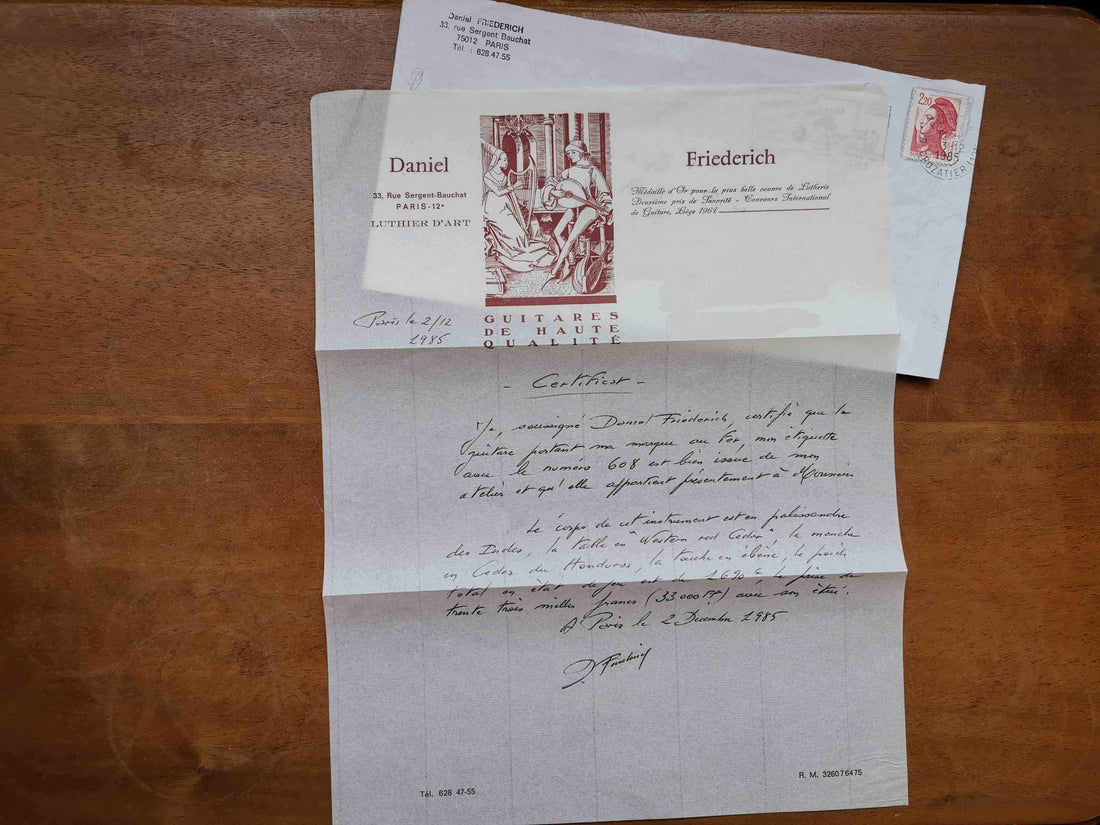 Daniel FRIEDERICH
33, rue Sergent Bauchat
75012 PARIS
Tél : 628.47.55
2,20
1985
CROZATIER
Daniel
33, Rue Sergent-Bauchat
PARIS-12e
LUTHIER D'ART
Friederich
Médaille d'Or pour la plus belle oeuvre de Lutherie
Deuxième prix de Sonorité - Concours International
de Guitare, Liège 1967
GUITARES
DE HAUTE
QUALITÉ
Paris le 2/12
1985
- Certificat -
Je, soussigné Daniel Friederich, certifie que la
guitare portant ma marque au fer, mon étiquette
avec le numéro 608 est bien issue de mon
atelier et qu'elle appartient présentement à Monsieur
Le corps de cet instrument est en palissandre
des Indes, la table en "Western red Cedar", le manche
en Cedro du Honduras, la touche en ébène, le poids
total en état de jeu est de 1690 g, le prix de
trente trois milles francs (33000 FF) avec son étui.
A Paris le 2 Décembre 1985
D Friederich
Tél. 628 47-55
R. M. 326076475